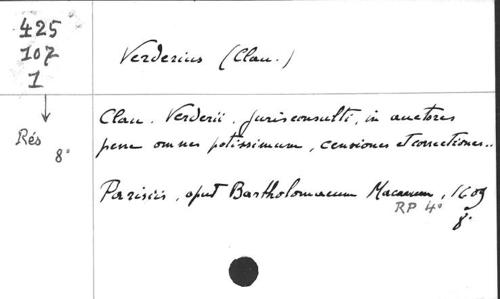 425
107
1
Rés
8°
Verderius (Clau.)
Clau. Verderii. Jurisconsulti, in auctores
pene omnes potissimum, censiones et correctiones..
Parisiis, aput Bartholomaeum Macaeum, 1609
RP 4°
8°